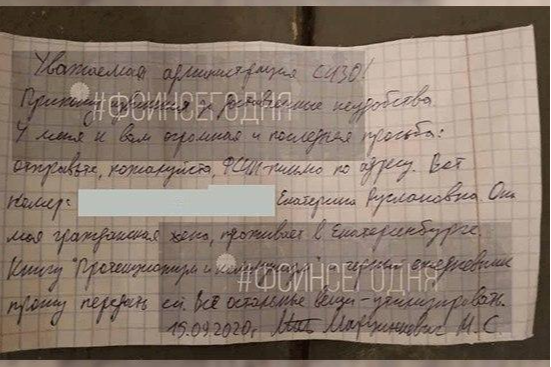 Уважаемая администрация СИЗО!
Приношу извинения за доставленные неудобства.
#ФСИНСЕГОДНЯ
У меня к вам огромная и последняя просьба:
отправьте, пожалуйста, ФСИН-письмо по адресу. Вот
номер: Екатерина Руслановна. Она
моя гражданская жена, проживает в Екатеринбурге.
Книгу "Протекционизм и коммунизм" и черный ежедневник
#ФСИНСЕГОДНЯ
прошу передать ей. Все остальные вещи - утилизировать.
15.09.2020г. Марцинкевич М.С.